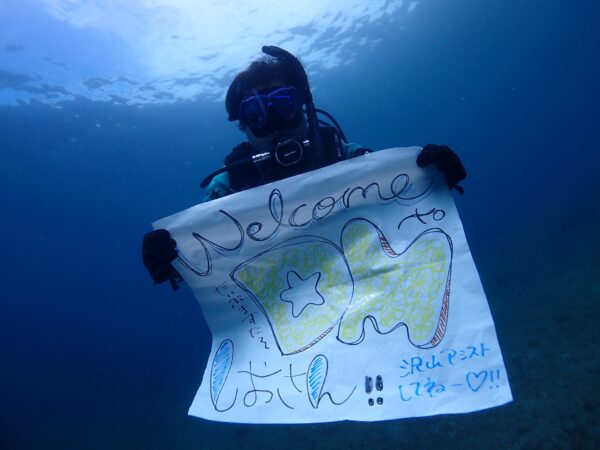 Welcome
to
DM
しおさん!!
沢山アシスト
してねー♡!!